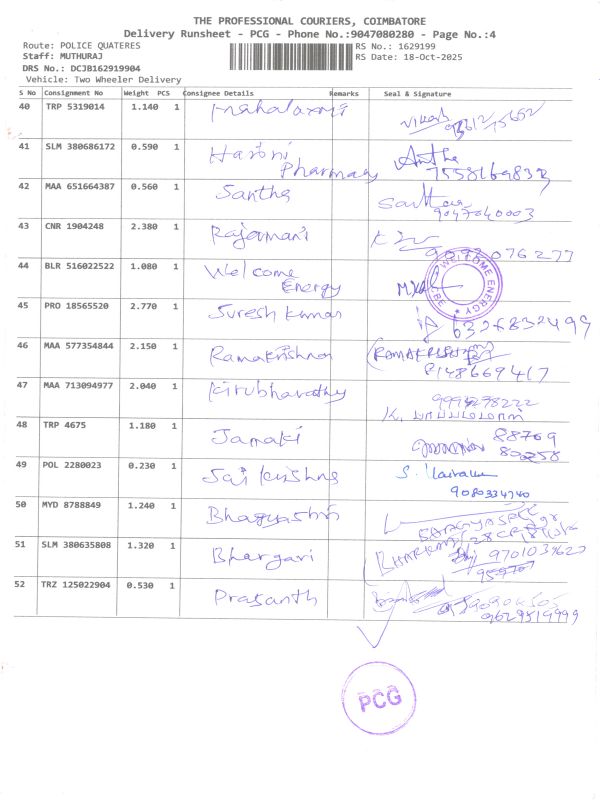 THE PROFESSIONAL COURIERS, COIMBATORE
Delivery Runsheet - PCG - Phone No.:9047080280 - Page No.:4
Route: POLICE QUATERES RS No.: 1629199
Staff: MUTHURAJ RS Date: 18-Oct-2025
DRS No.: DCJB162919904
Vehicle: Two Wheeler Delivery
S No Consignment No Weight PCS Consignee Details Remarks Seal & Signature
40 TRP 5319014 1.140 1 mahalaxmi Vikash
41 SLM 380686172 0.590 1 Harini Pharmacy Antha
7558169833
42 MAA 651664387 0.560 1 Santha Santha
9047040003
43 CNR 1904248 2.380 1 Rajamani
9092076277
44 BLR 516022522 1.080 1 Welcome Energy WELCOME ENERGY CBE
45 PRO 18565520 2.770 1 Suresh kumar
6374832499
46 MAA 577354844 2.150 1 Ramakrishnan
8148669417
47 MAA 713094977 2.040 1 Kirubharathy
48 TRP 4675 1.180 1 Janaki 88709
80258
49 POL 2280023 0.230 1 Sai krishna
9080334740
50 MYD 8788849 1.240 1 Bhagyashri
51 SLM 380635808 1.320 1 Bhargavi 9701039620
52 TRZ 125022904 0.530 1 Prasanth
9629519999
PCG